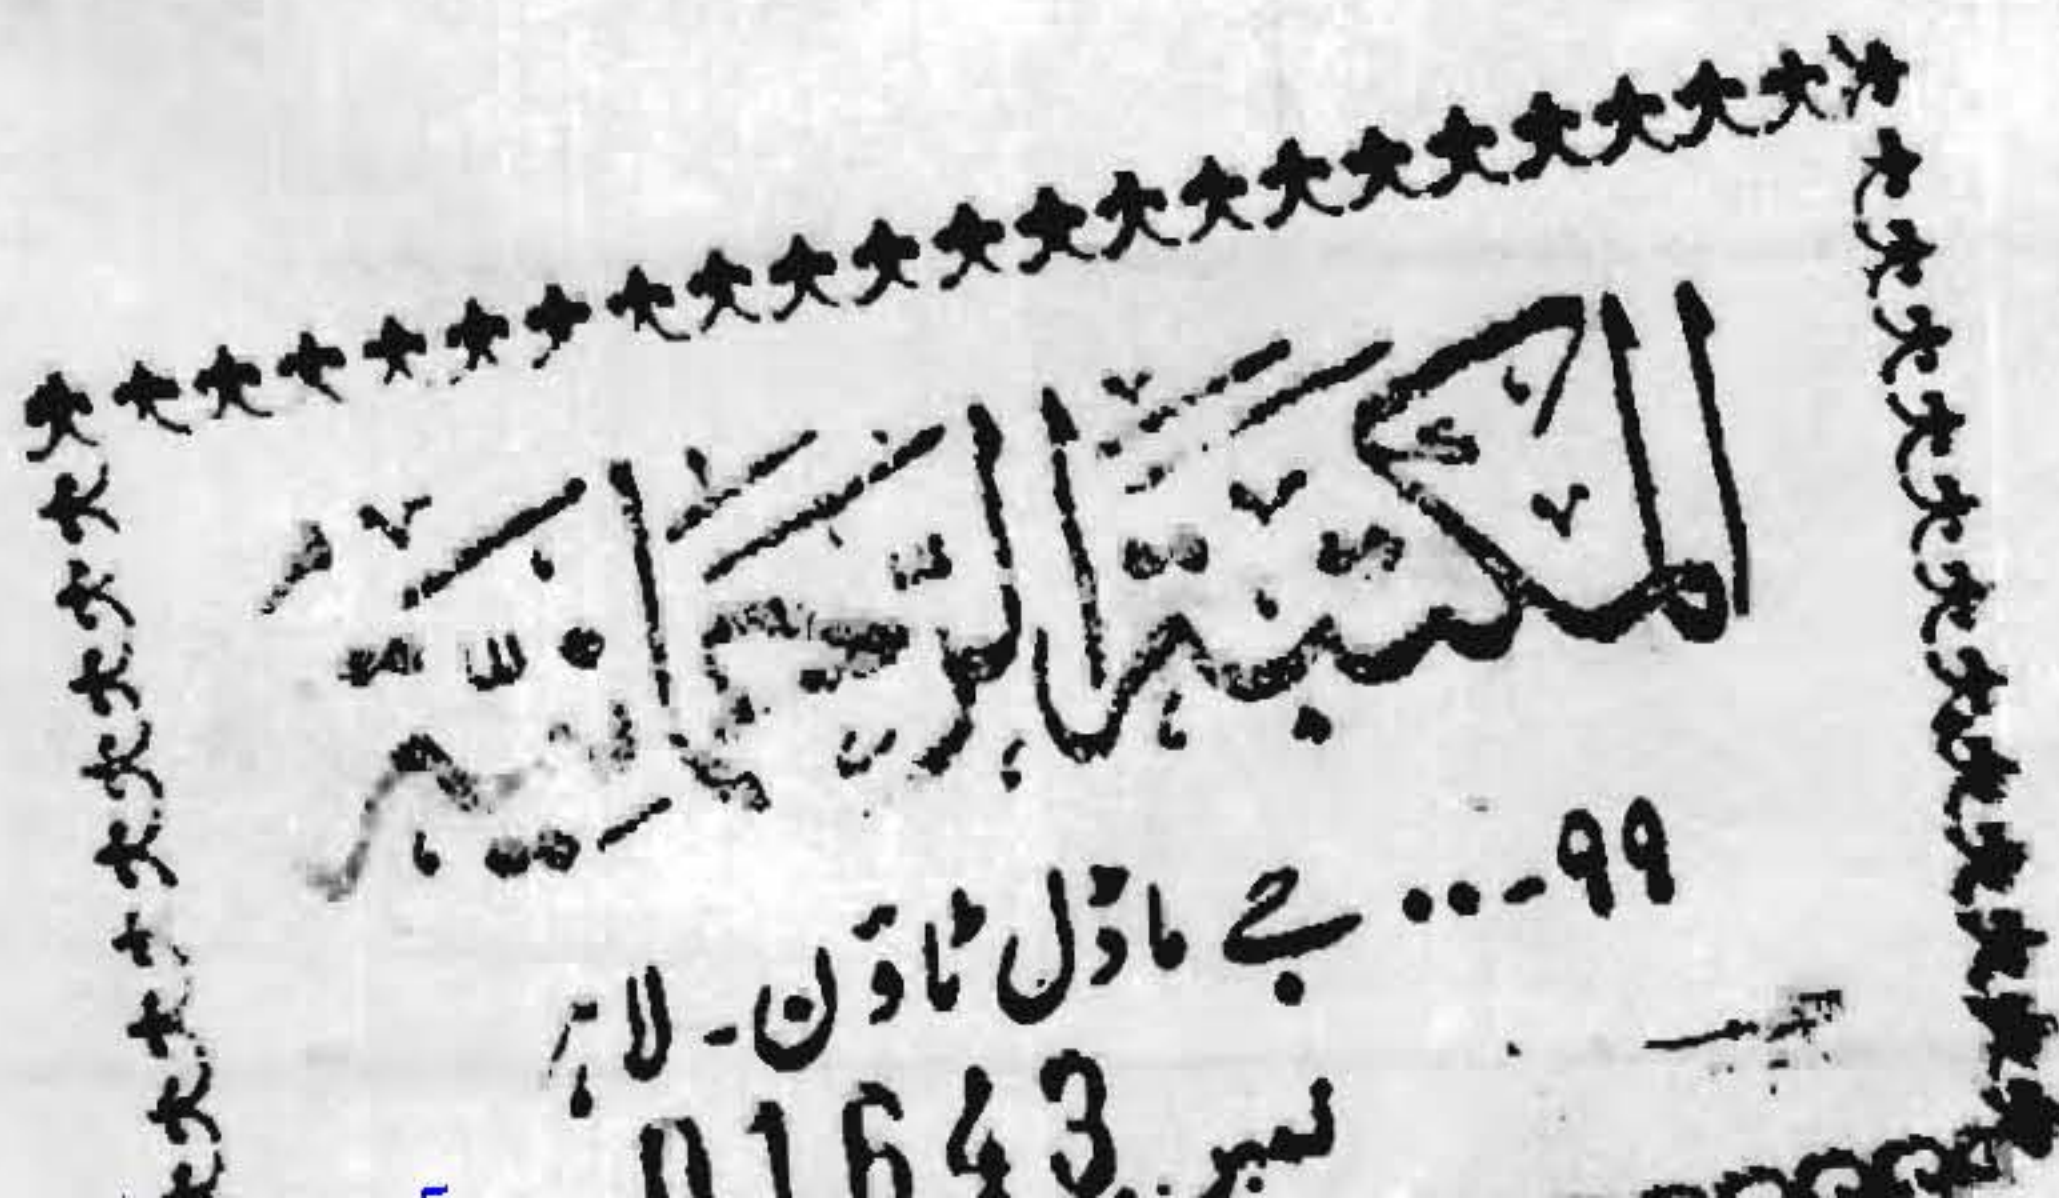 المکتبۃ الرحمانیۃ
۹۹-۰۰ جے ماڈل ٹاؤن۔ لاہ
نمبر 01643